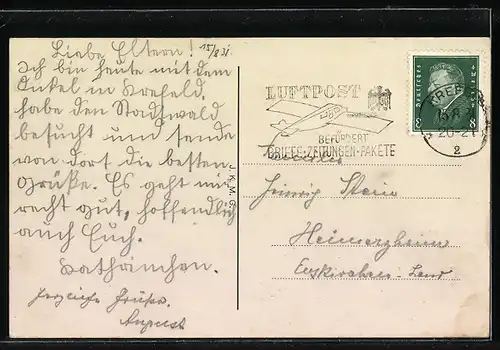 Liebe Eltern! 15/8 31.
Ich bin heute mit dem
Onkel in Krefeld,
habe den Stadtwald
besucht und sende
von dort die besten
Grüße. Es geht mir
recht gut, hoffentlich
auch Euch.
Kathrinchen.
Herzliche Grüße
August
J. K. M. G.
LUFTPOST
BEFÖRDERT
BRIEFE-ZEITUNGEN-PAKETE
DEUTSCHES REICH
8 8
KREFELD
15.8.
20-21
2
Heinrich Stein
Heimerzheim
Euskirchen-Land